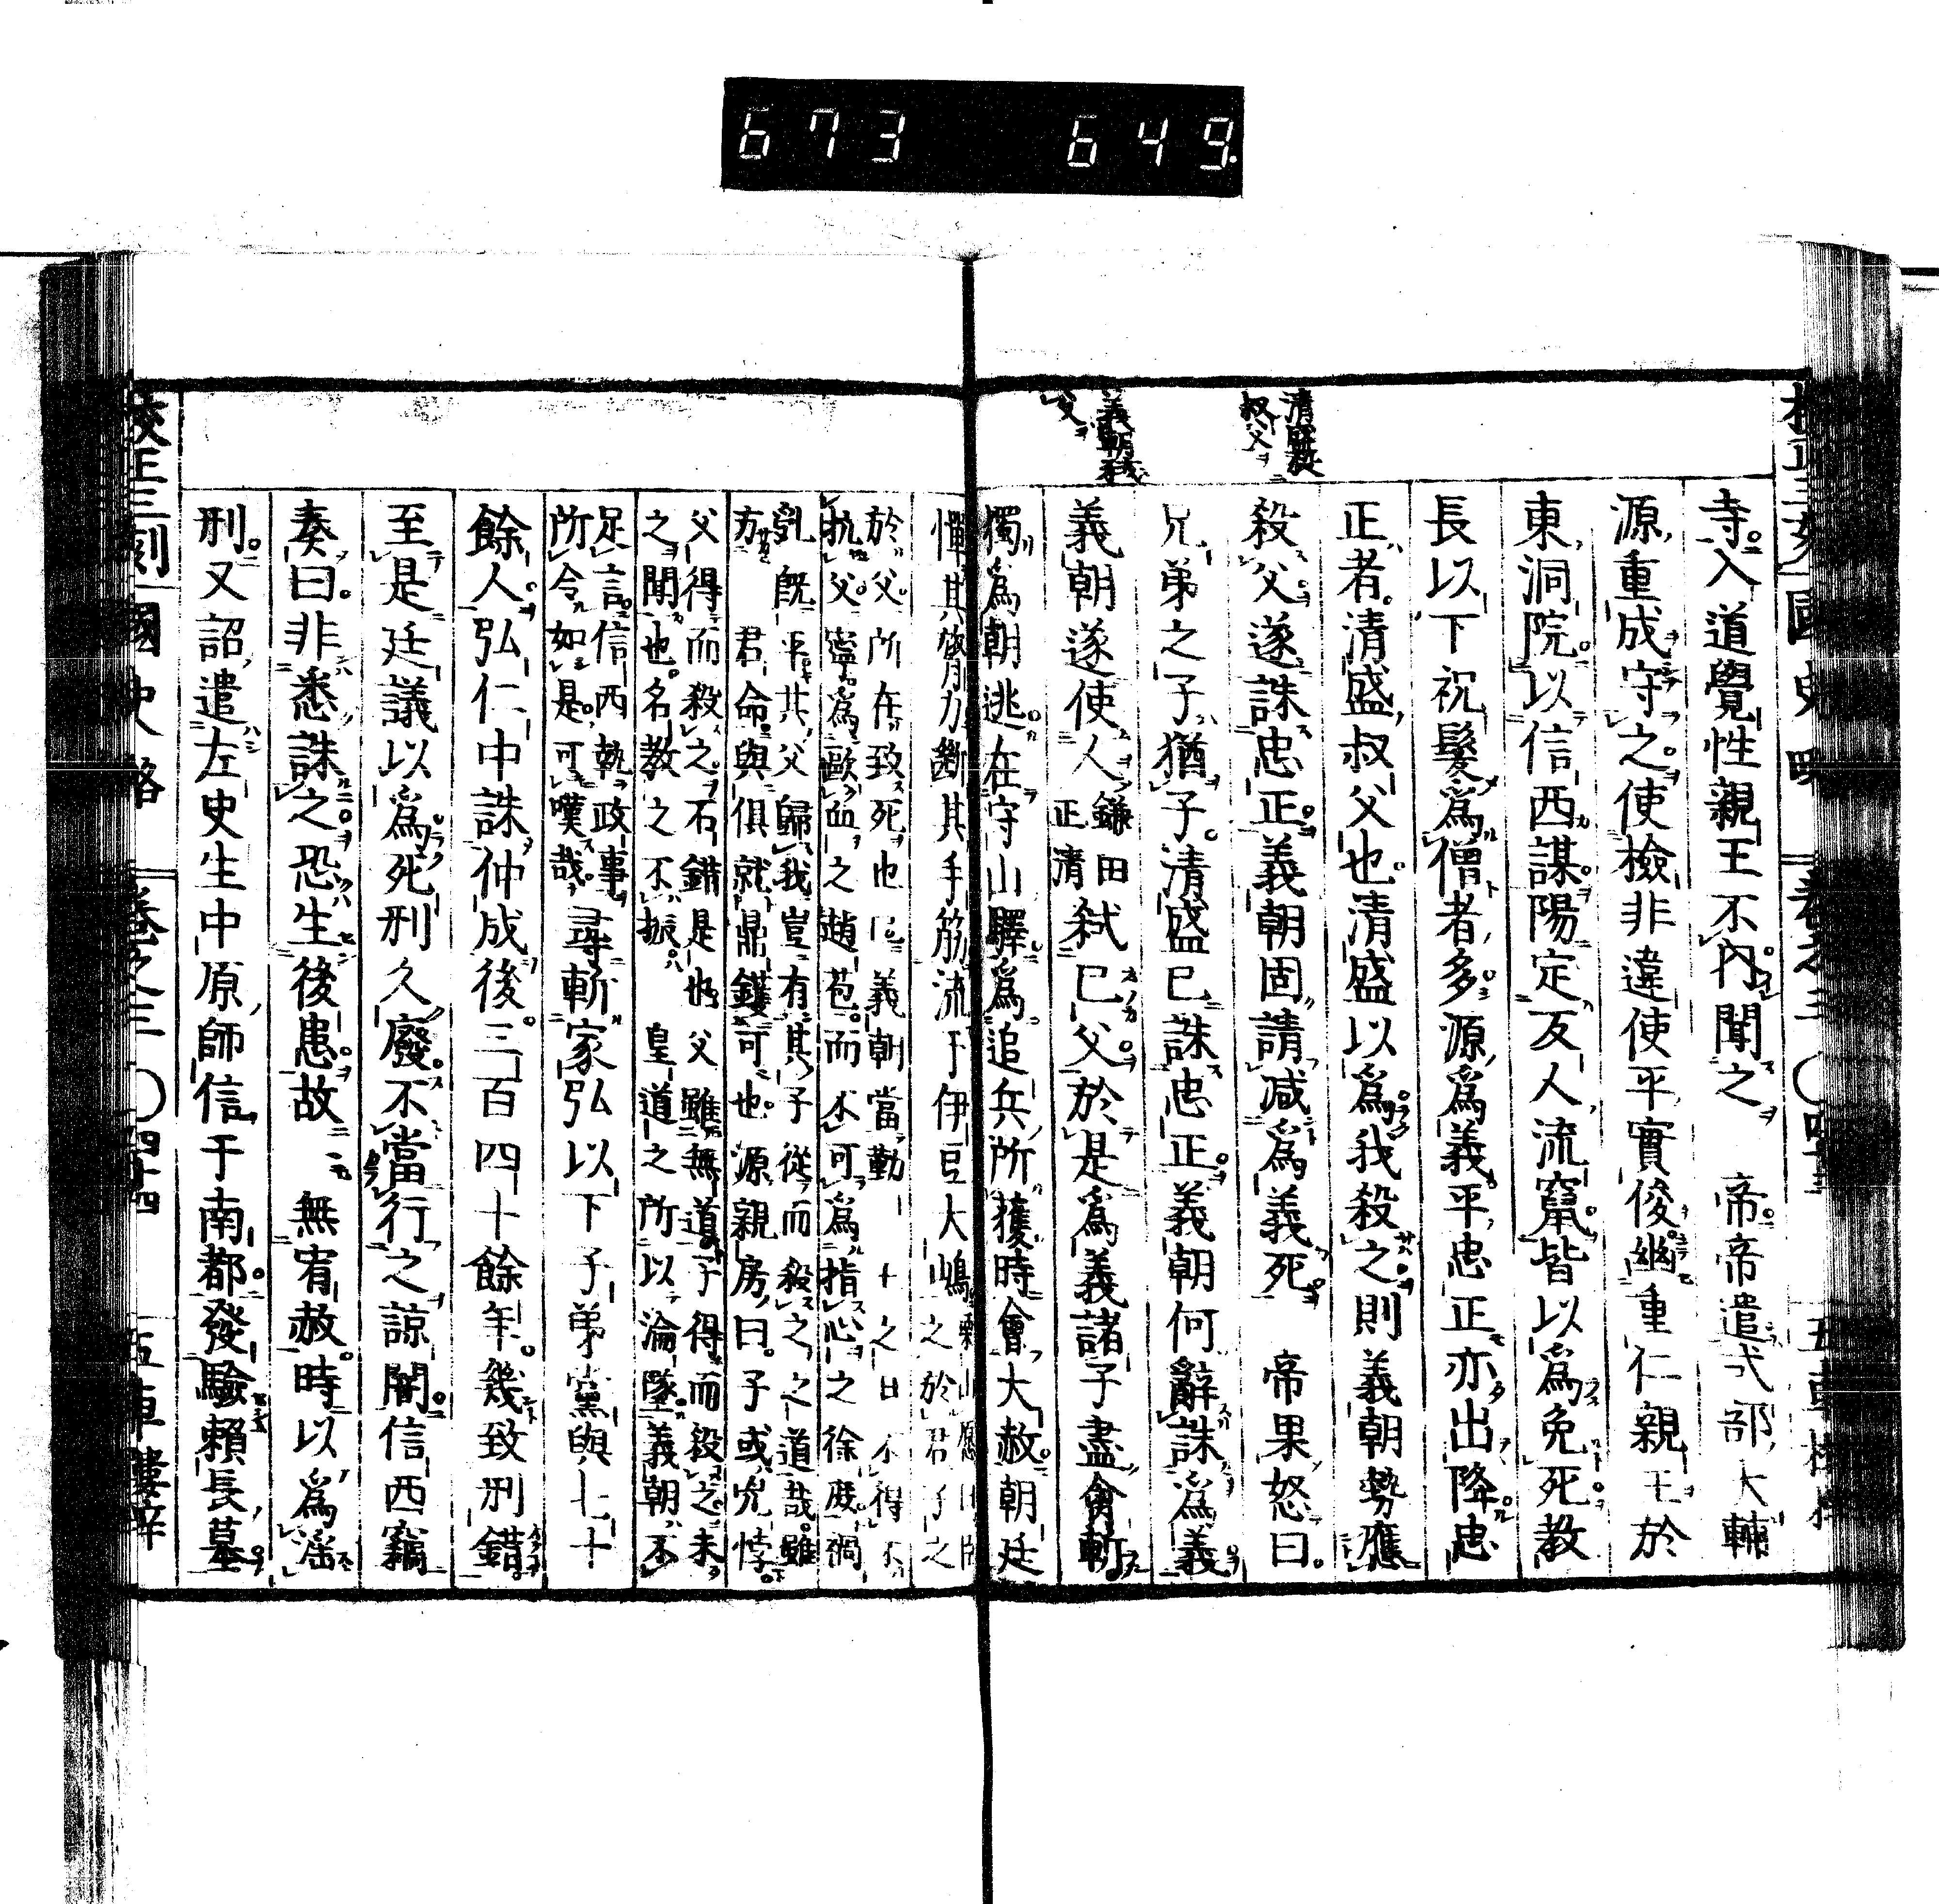 673 649.
清盛殺
叔父
義朝弑
父
寺入道覺性親王不内聞之 帝帝遣式部大輔
源重成守之使檢非違使平實俊幽重仁親王於
東洞院以信西謀陽定友人流竄皆以爲免死教
長以下祝髮爲僧者多源爲義平忠正亦出降忠
正者清盛叔父也清盛以爲我殺之則義朝勢應
殺父遂誅忠正義朝固請減爲義死 帝果怒曰
兄弟之子猶子清盛已誅忠正義朝何辭誅爲義
義朝遂使人鎌田正清弑已父於是爲義諸子盡禽斬
獨爲朝逃在守山驛爲追兵所獲時會大赦朝廷
憚其膂力斷其手筋流于伊豆大嶋
之於君子之
於父所在致死也 義朝當勤 十之日不得不
抗父寧爲歐血之趙苞而不可爲指心之徐庶禍
乳既平其父歸我豈有其子從而殺之之道哉雖
君命與俱就鼎鑊可也源親房曰子或兇悖
父得而殺之石錯是也父雖無道子得而殺之未
之聞也名教之不振 皇道之所以淪墜義朝不
足言信西執政事
所令如是可嘆哉尋斬家弘以下子弟黨與七十
餘人弘仁中誅仲成後三百四十餘年幾致刑錯
至是廷議以爲死刑久廢不當行之諒闇信西竊
奏曰非悉誅之恐生後患故 無宥赦時以爲滛
刑又詔遣左史生中原師信于南都發驗賴長墓
校正三刻 國史略 卷之三 〇四十四 五車樓梓